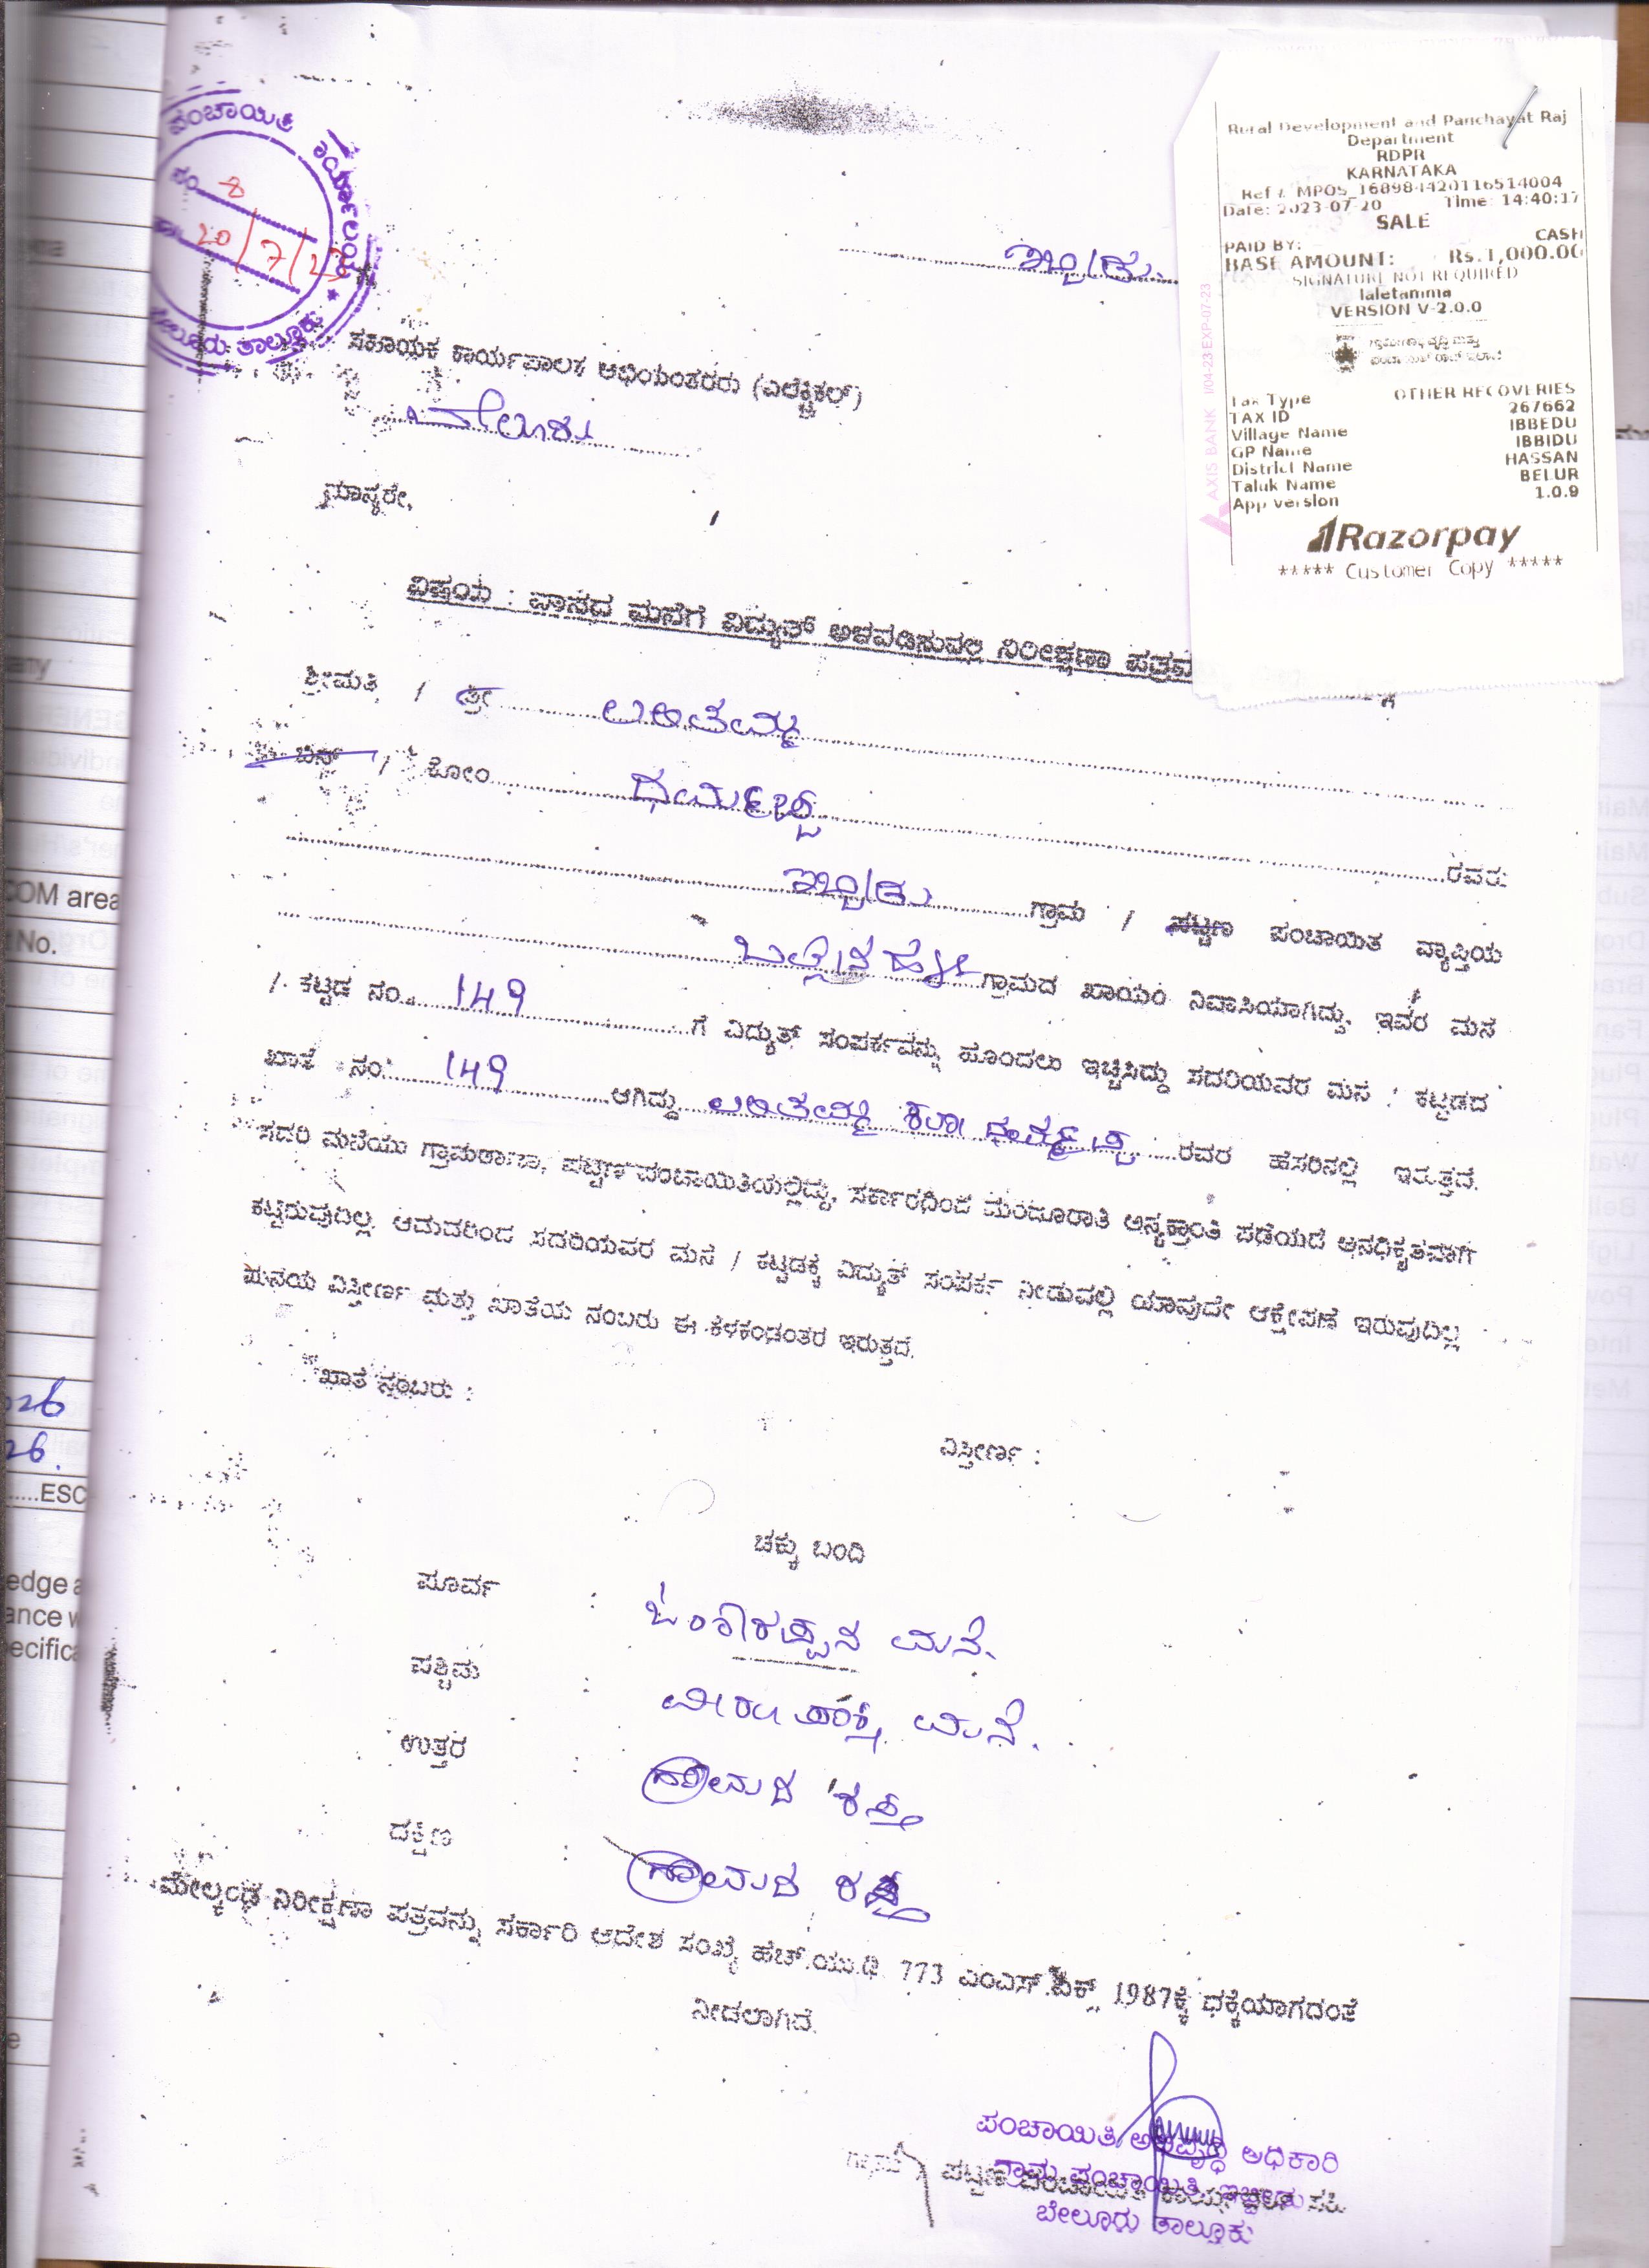 ಪಂಚಾಯಿತಿ ಕಾರ್ಯಾಲಯ
ನಂ 8
20/7/23
ಬೇಲೂರು ತಾಲ್ಲೂಕು
Rural Development and Panchayat Raj
Department
RDPR
KARNATAKA
Ref # MPOS_1689844420116514004
Date: 2023-07-20 Time: 14:40:17
SALE
PAID BY: CASH
BASE AMOUNT: Rs.1,000.00
SIGNATURE NOT REQUIRED
laletamma
VERSION V-2.0.0
Tax Type OTHER RECOVERIES
TAX ID 267662
Village Name IBBEDU
GP Name IBBIDU
District Name HASSAN
Taluk Name BELUR
App version 1.0.9
Razorpay
***** Customer Copy *****
AXIS BANK I/04-23 EXP-07-23
ಇಬ್ಬೀಡು.
ಸಹಾಯಕ ಕಾರ್ಯಪಾಲಕ ಅಭಿಯಂತರರು (ಎಲೆಕ್ಟ್ರಿಕಲ್)
ಬೇಲೂರು
ಮಾನ್ಯರೇ,
ವಿಷಯ : ವಾಸದ ಮನೆಗೆ ವಿದ್ಯುತ್ ಅಳವಡಿಸುವಲ್ಲಿ ನಿರೀಕ್ಷಣಾ ಪತ್ರವ
ಶ್ರೀಮತಿ / ಶ್ರೀ ಲಲಿತಮ್ಮ
ಬಿನ್ / ಕೋಂ ಧರ್ಮಪ್ಪ
ರವರು
ಇಬ್ಬೀಡು ಗ್ರಾಮ / ಪಟ್ಟಣ ಪಂಚಾಯಿತ ವ್ಯಾಪ್ತಿಯ
ಗ್ರಾಮದ ಖಾಯಂ ನಿವಾಸಿಯಾಗಿದ್ದು, ಇವರ ಮನೆ
/ ಕಟ್ಟಡ ನಂ. 149 ಗೆ ವಿದ್ಯುತ್ ಸಂಪರ್ಕವನ್ನು ಹೊಂದಲು ಇಚ್ಚಿಸಿದ್ದು ಸದರಿಯವರ ಮನೆ / ಕಟ್ಟಡದ
ಖಾತೆ ನಂ 149 ಆಗಿದ್ದು ಲಲಿತಮ್ಮ ಕೋಂ ಧರ್ಮಪ್ಪ ರವರ ಹೆಸರಿನಲ್ಲಿ ಇರುತ್ತದೆ.
ಸದರಿ ಮನೆಯು ಗ್ರಾಮಠಾಣಾ, ಪಟ್ಟಣ ಪಂಚಾಯಿತಿಯಲ್ಲಿದ್ದು, ಸರ್ಕಾರದಿಂದ ಮಂಜೂರಾತಿ ಅನ್ಯಕ್ರಾಂತಿ ಪಡೆಯದೆ ಅನಧಿಕೃತವಾಗಿ
ಕಟ್ಟಿರುವುದಿಲ್ಲ. ಆದುದರಿಂದ ಸದರಿಯವರ ಮನೆ / ಕಟ್ಟಡಕ್ಕೆ ವಿದ್ಯುತ್ ಸಂಪರ್ಕ ನೀಡುವಲ್ಲಿ ಯಾವುದೇ ಆಕ್ಷೇಪಣೆ ಇರುವುದಿಲ್ಲ
ಮನೆಯ ವಿಸ್ತೀರ್ಣ ಮತ್ತು ಖಾತೆಯ ನಂಬರು ಈ ಕೆಳಕಂಡಂತರ ಇರುತ್ತದೆ.
ಖಾತೆ ನಂಬರು :
ವಿಸ್ತೀರ್ಣ :
ಚಕ್ಕು ಬಂದಿ
ಪೂರ್ವ : ಮನೆ.
ಪಶ್ಚಿಮ : ಮನೆ.
ಉತ್ತರ : ಗ್ರಾಮದ ರಸ್ತೆ
ದಕ್ಷಿಣ : ಗ್ರಾಮದ ರಸ್ತೆ
ಮೇಲ್ಕಂಡ ನಿರೀಕ್ಷಣಾ ಪತ್ರವನ್ನು ಸರ್ಕಾರಿ ಆದೇಶ ಸಂಖ್ಯೆ ಹೆಚ್.ಯು.ಡಿ. 773 ಎಂಎನ್.ಎಕ್ಸ್ 1987ಕ್ಕೆ ಧಕ್ಕೆಯಾಗದಂತೆ
ನೀಡಲಾಗಿದೆ.
ಪಂಚಾಯಿತಿ ಅಭಿವೃದ್ಧಿ ಅಧಿಕಾರಿ
ಗ್ರಾಮ ಪಂಚಾಯಿತಿ, ಇಬ್ಬೀಡು
ಬೇಲೂರು ತಾಲ್ಲೂಕು